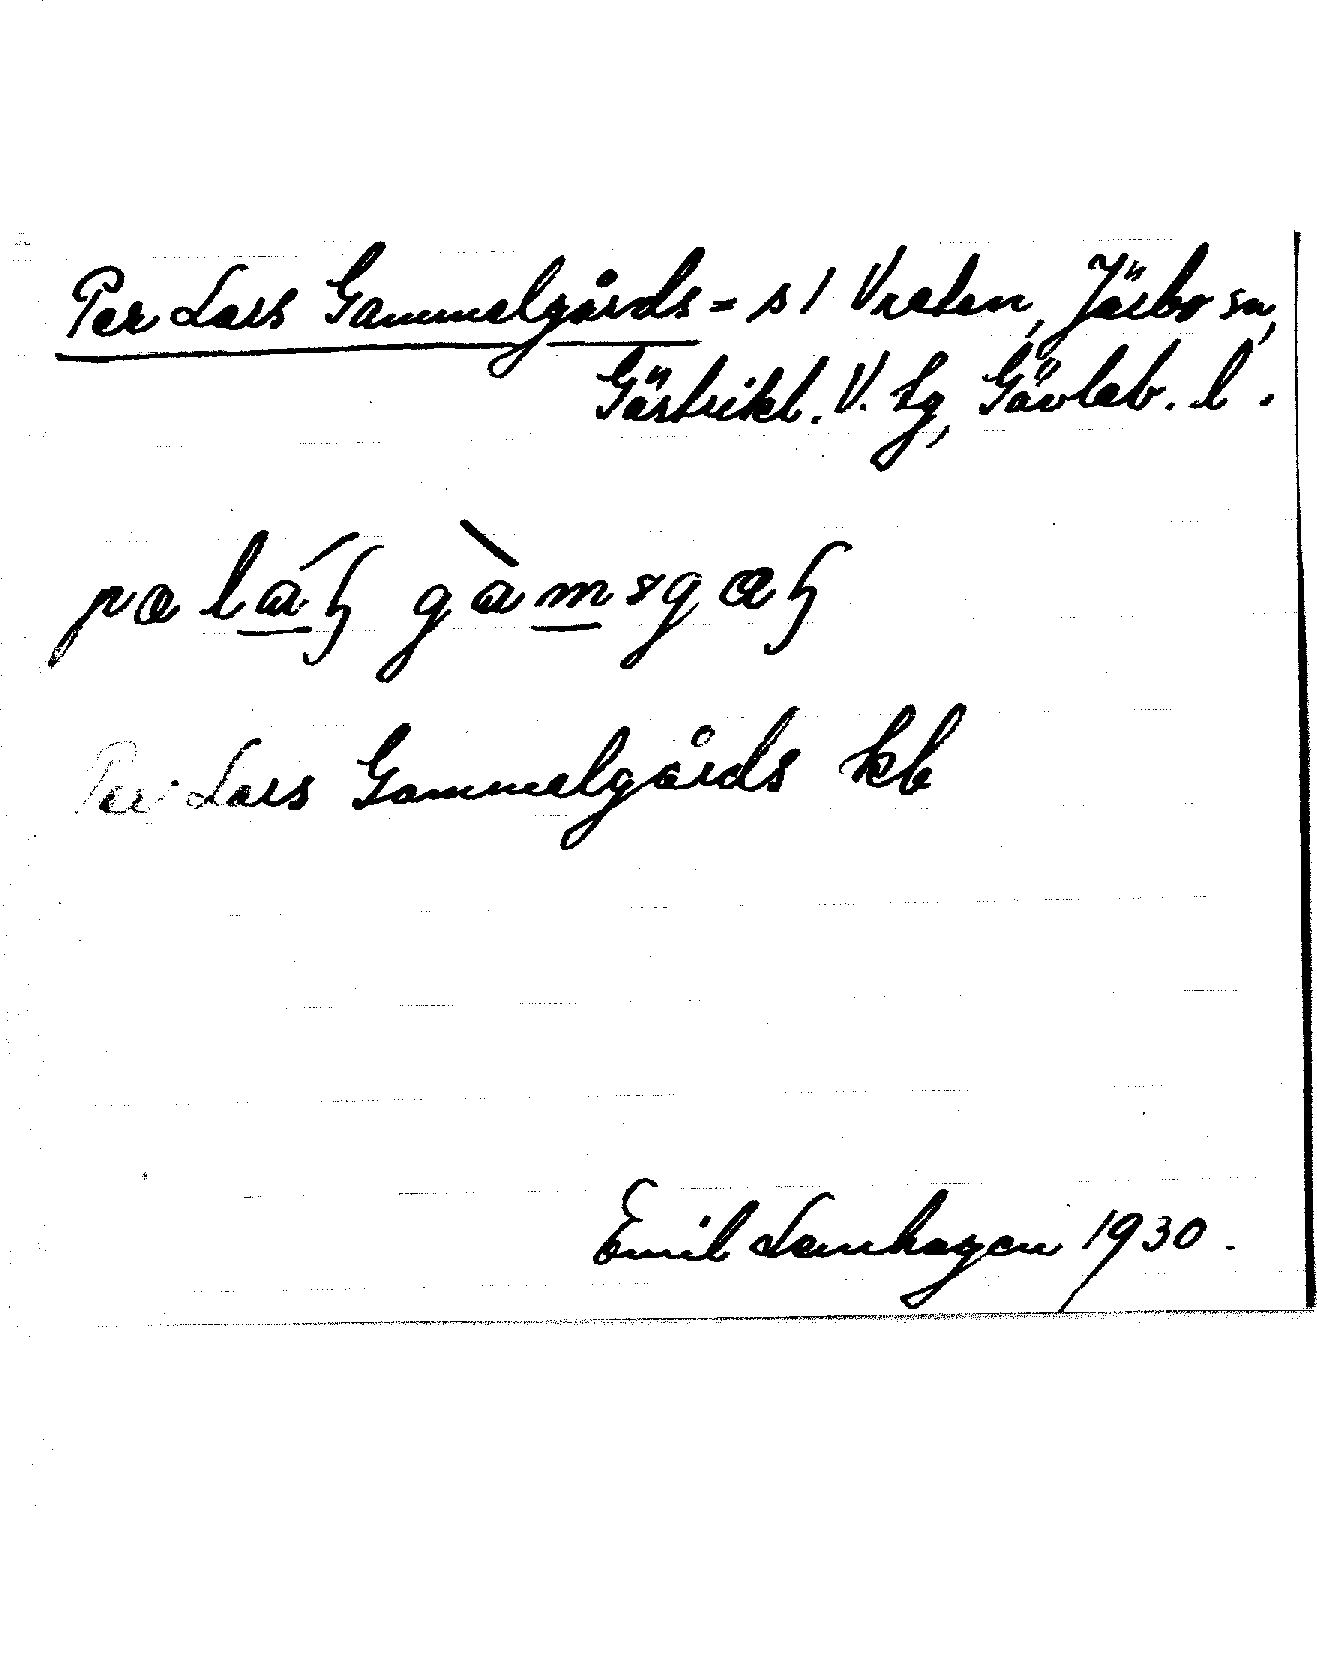 Per Lars Gammelgårds = s / Vreten, Järbo sn,
Gästrikl. V. tg, Gävleb. l.
Per Lars Gammelgårds kb
Emil Lenhagen 1930.